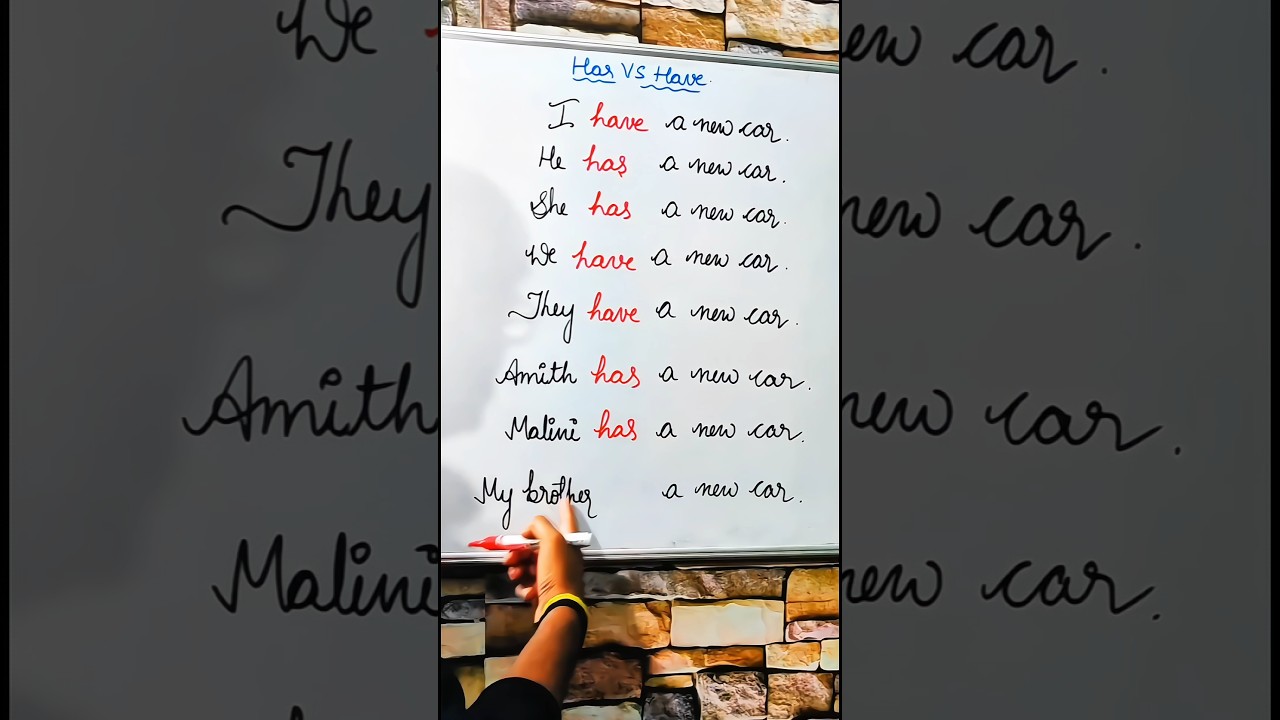 Has VS Have.
I have a new car.
He has a new car.
She has a new car.
We have a new car.
They have a new car.
Amith has a new car.
Malini has a new car.
My brother a new car.